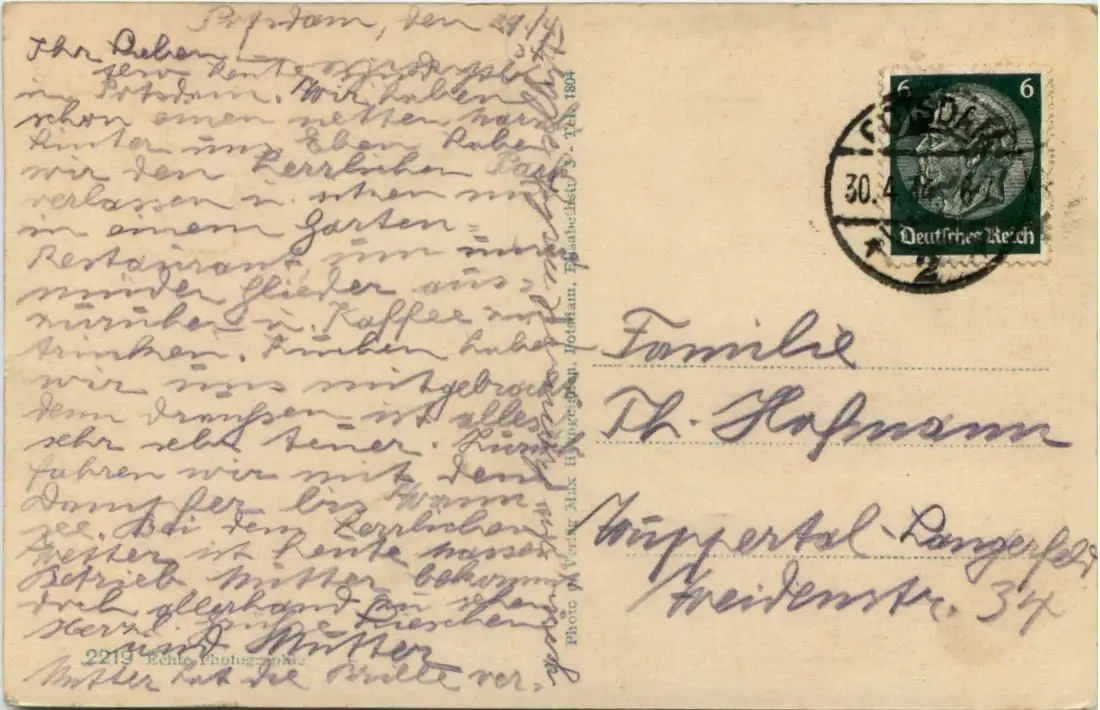 Potsdam, den 29./4.
34
Ihr Lieben
heute
in Potsdam. Wir haben
schon einen netten Marsch
hinter uns. Eben haben
wir den herrlichen Park
verlassen u. sitzen nun
in einem Garten-
Restaurant um unsere
müden Glieder aus-
zuruhen u. Kaffee zu
trinken. Kuchen haben
wir uns mitgebracht
denn draußen ist alles
sehr sehr teuer. Zurück
fahren wir mit dem
Dampfer bis Wann-
see. Bei dem herrlichen
Wetter ist heute massen
Betrieb. Mutter bekommt
doch allerhand zu sehen
Herzl. Grüße Lieschen
und Mutter
Mutter hat die Brille ver-
gessen
2219 Echte Photographie
Photo u. Verlag Max Potsdam, Elisabethstr. 3 - Tel. 1804
6 6
Deutsches Reich
POTSDAM
30.4.34
2
Familie
Th. Hofmann
Wuppertal-Langerfeld
Weidenstr. 34